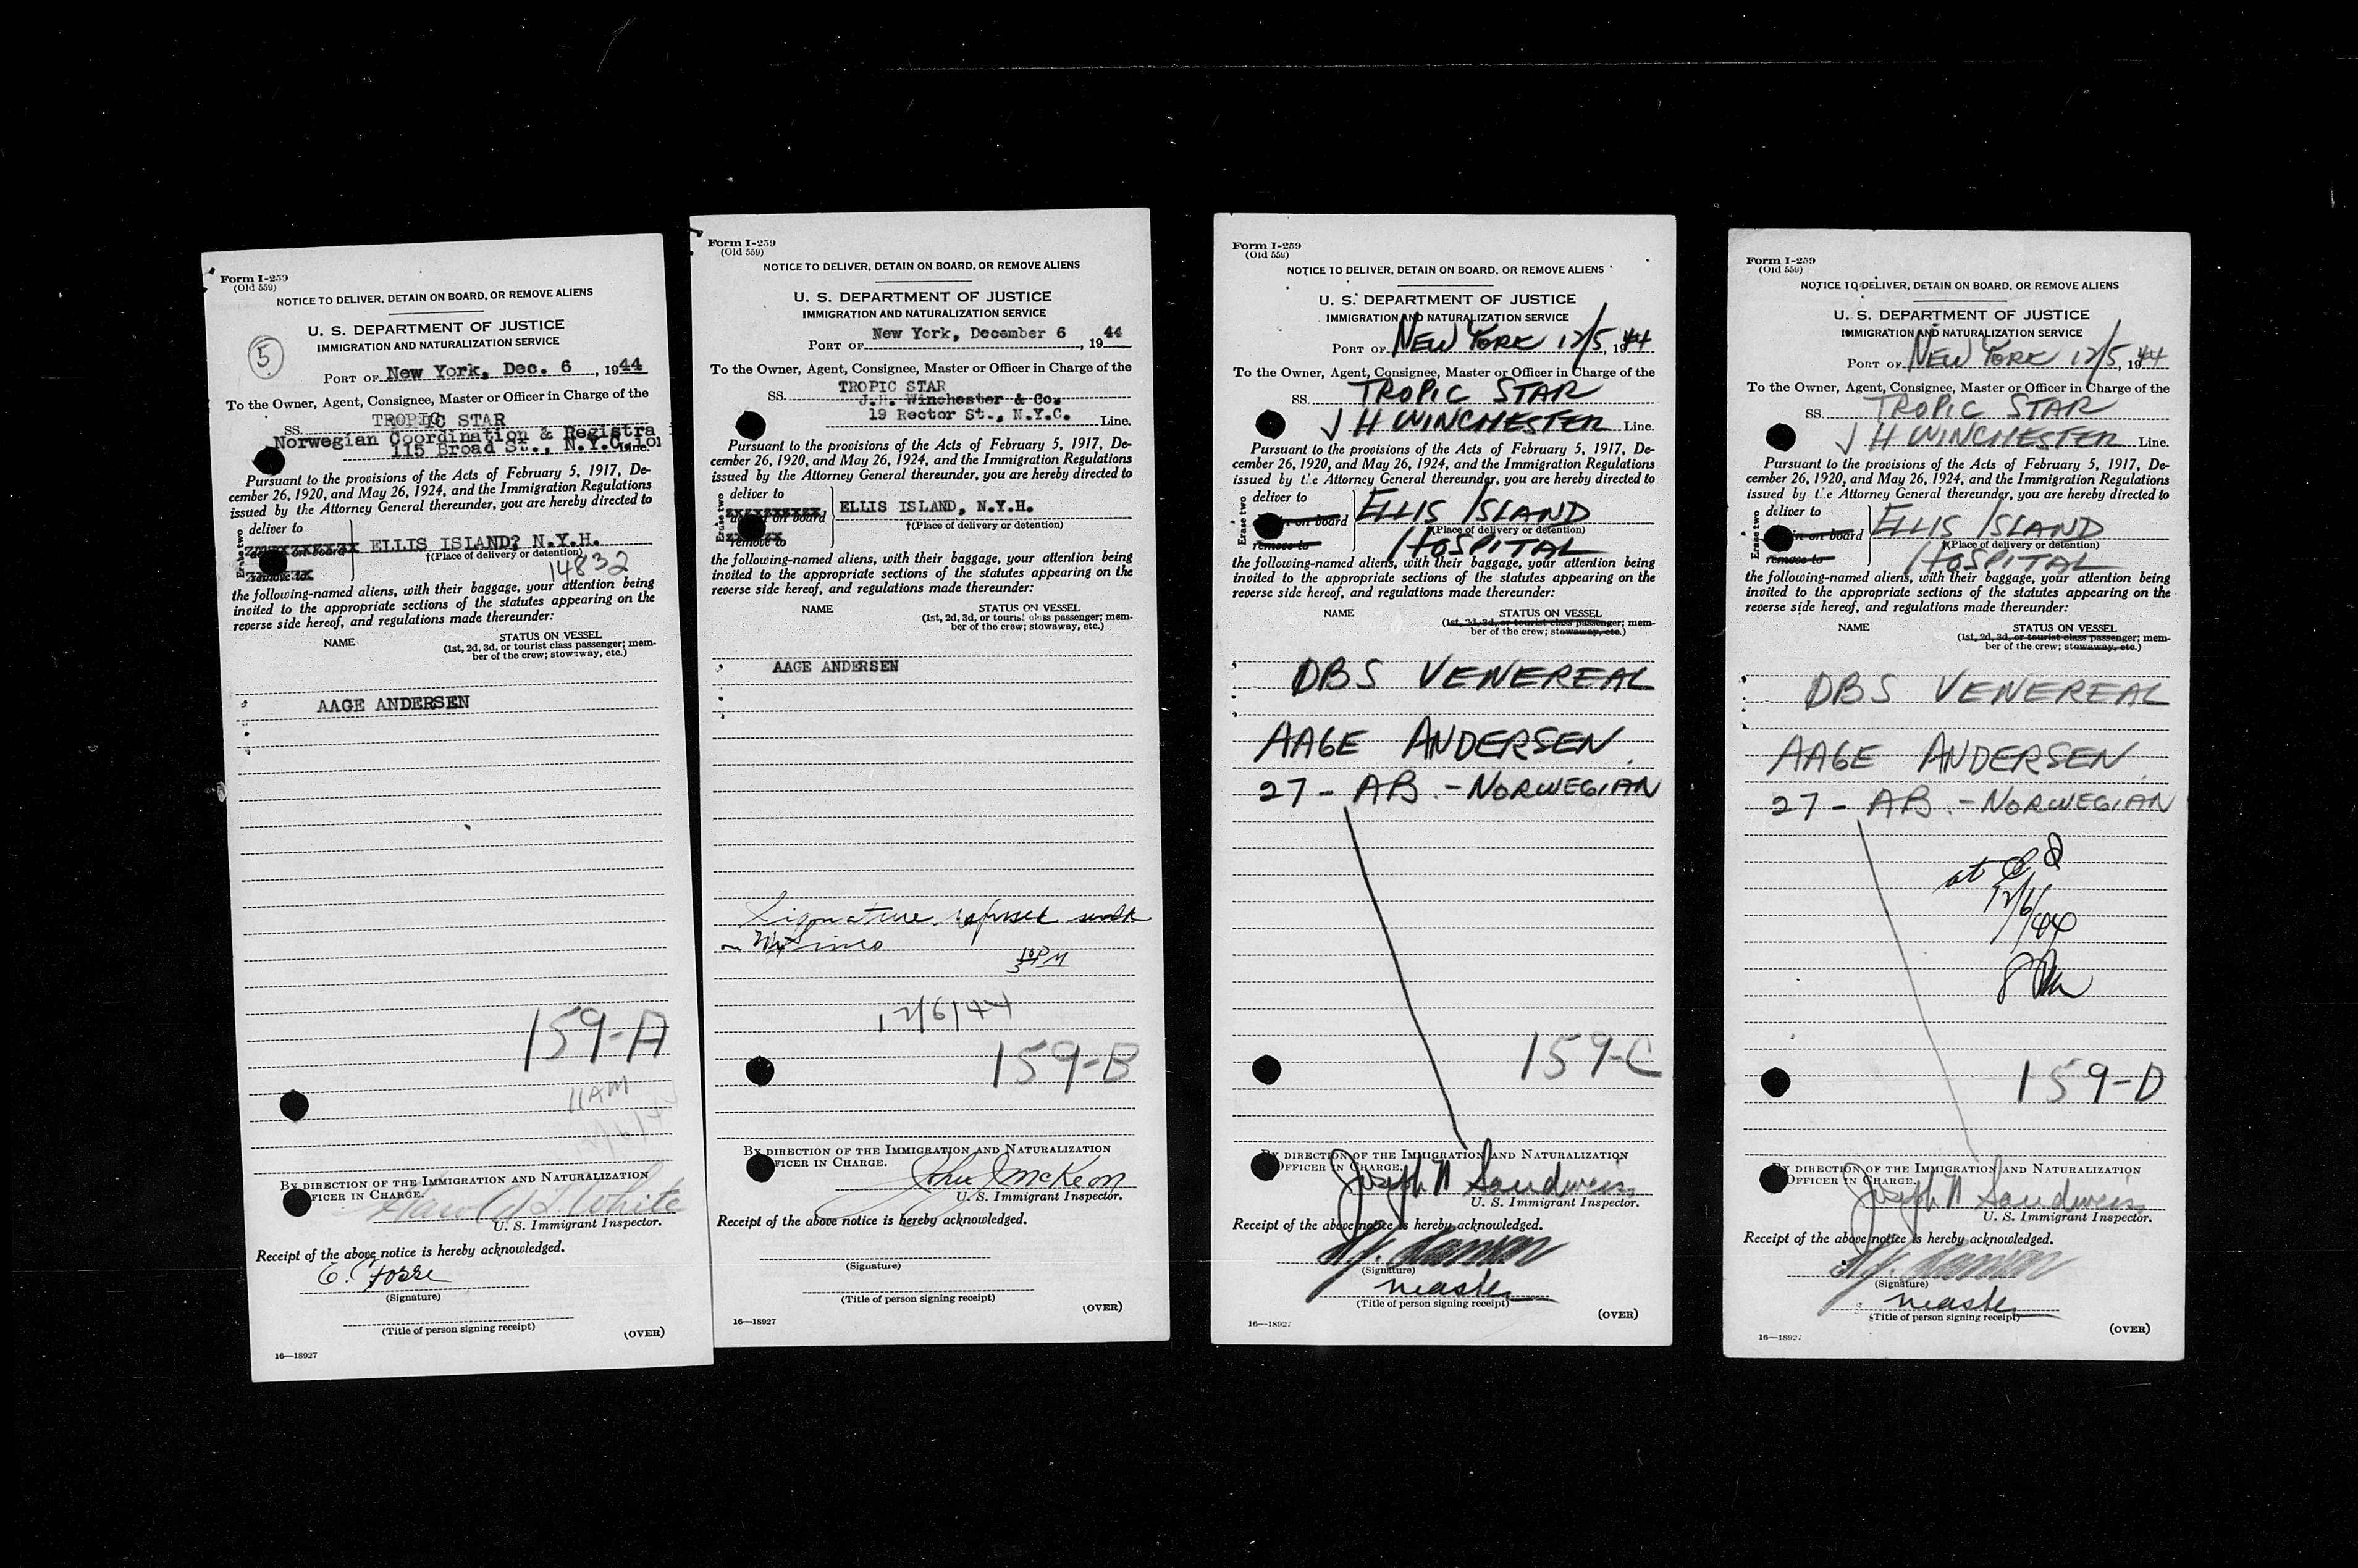 Form I-259
(Old 559)
NOTICE TO DELIVER, DETAIN ON BOARD, OR REMOVE ALIENS
U. S. DEPARTMENT OF JUSTICE
IMMIGRATION AND NATURALIZATION SERVICE
5
PORT OF New York, Dec. 6, 1944
To the Owner, Agent, Consignee, Master or Officer in Charge of the
SS. TROPIC STAR
Norwegian Coordination & Registra
115 Broad St., N.Y.C.
Pursuant to the provisions of the Acts of February 5, 1917, De-
cember 26, 1920, and May 26, 1924, and the Immigration Regulations
issued by the Attorney General thereunder, you are hereby directed to
Erase two
deliver to
on board
remove to
ELLIS ISLAND? N.Y.H.
†(Place of delivery or detention)
14832
the following-named aliens, with their baggage, your attention being
invited to the appropriate sections of the statutes appearing on the
reverse side hereof, and regulations made thereunder:
NAME STATUS ON VESSEL
(1st, 2d, 3d, or tourist class passenger; mem-
ber of the crew; stowaway, etc.)
AAGE ANDERSEN
159-A
11AM
BY DIRECTION OF THE IMMIGRATION AND NATURALIZATION
OFFICER IN CHARGE.
Harold L. White
U. S. Immigrant Inspector.
Receipt of the above notice is hereby acknowledged.
E. Fosse
(Signature)
(Title of person signing receipt)
(OVER)
16—18927
Form I-259
(Old 559)
NOTICE TO DELIVER, DETAIN ON BOARD, OR REMOVE ALIENS
U. S. DEPARTMENT OF JUSTICE
IMMIGRATION AND NATURALIZATION SERVICE
PORT OF New York, December 6, 1944
To the Owner, Agent, Consignee, Master or Officer in Charge of the
SS. TROPIC STAR
J.H. Winchester & Co.
19 Rector St., N.Y.C. Line.
Pursuant to the provisions of the Acts of February 5, 1917, De-
cember 26, 1920, and May 26, 1924, and the Immigration Regulations
issued by the Attorney General thereunder, you are hereby directed to
Erase two
deliver to
on board
remove to
ELLIS ISLAND, N.Y.H.
†(Place of delivery or detention)
the following-named aliens, with their baggage, your attention being
invited to the appropriate sections of the statutes appearing on the
reverse side hereof, and regulations made thereunder:
NAME STATUS ON VESSEL
(1st, 2d, 3d, or tourist class passenger; mem-
ber of the crew; stowaway, etc.)
AAGE ANDERSEN
Signature refused
310PM
12/6/44
159-B
BY DIRECTION OF THE IMMIGRATION AND NATURALIZATION
OFFICER IN CHARGE.
John J McKeon
U. S. Immigrant Inspector.
Receipt of the above notice is hereby acknowledged.
(Signature)
(Title of person signing receipt)
(OVER)
16—18927
Form I-259
(Old 559)
NOTICE TO DELIVER, DETAIN ON BOARD, OR REMOVE ALIENS
U. S. DEPARTMENT OF JUSTICE
IMMIGRATION AND NATURALIZATION SERVICE
PORT OF NEW YORK 12/5, 1944
To the Owner, Agent, Consignee, Master or Officer in Charge of the
SS. TROPIC STAR
J H WINCHESTER Line.
Pursuant to the provisions of the Acts of February 5, 1917, De-
cember 26, 1920, and May 26, 1924, and the Immigration Regulations
issued by the Attorney General thereunder, you are hereby directed to
Erase two
deliver to
in on board
remove to
ELLIS ISLAND
†(Place of delivery or detention)
HOSPITAL
the following-named aliens, with their baggage, your attention being
invited to the appropriate sections of the statutes appearing on the
reverse side hereof, and regulations made thereunder:
NAME STATUS ON VESSEL
(1st, 2d, 3d, or tourist class passenger; mem-
ber of the crew; stowaway, etc.)
DBS VENEREAL
AAGE ANDERSEN
27 - AB. - NORWEGIAN
159-C
BY DIRECTION OF THE IMMIGRATION AND NATURALIZATION
OFFICER IN CHARGE.
Joseph N Sandweis
U. S. Immigrant Inspector.
Receipt of the above notice is hereby acknowledged.
(Signature)
Master
(Title of person signing receipt)
(OVER)
16—18927
Form I-259
(Old 559)
NOTICE TO DELIVER, DETAIN ON BOARD, OR REMOVE ALIENS
U. S. DEPARTMENT OF JUSTICE
IMMIGRATION AND NATURALIZATION SERVICE
PORT OF NEW YORK 12/5, 1944
To the Owner, Agent, Consignee, Master or Officer in Charge of the
SS. TROPIC STAR
J H WINCHESTER Line.
Pursuant to the provisions of the Acts of February 5, 1917, De-
cember 26, 1920, and May 26, 1924, and the Immigration Regulations
issued by the Attorney General thereunder, you are hereby directed to
Erase two
deliver to
in on board
remove to
ELLIS ISLAND
†(Place of delivery or detention)
HOSPITAL
the following-named aliens, with their baggage, your attention being
invited to the appropriate sections of the statutes appearing on the
reverse side hereof, and regulations made thereunder:
NAME STATUS ON VESSEL
(1st, 2d, 3d, or tourist class passenger; mem-
ber of the crew; stowaway, etc.)
DBS VENEREAL
AAGE ANDERSEN
27 - AB. - NORWEGIAN
at
12/6/44
159-D
BY DIRECTION OF THE IMMIGRATION AND NATURALIZATION
OFFICER IN CHARGE.
Joseph N Sandweis
U. S. Immigrant Inspector.
Receipt of the above notice is hereby acknowledged.
(Signature)
Master
(Title of person signing receipt)
(OVER)
16—18927